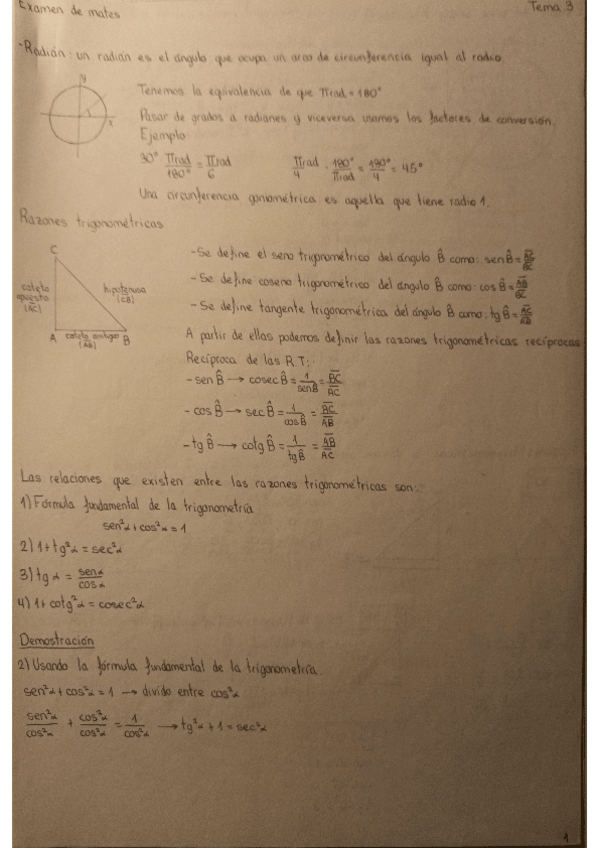 Examen de mates
Tema 3
-Radián: un radián es el ángulo que ocupa un arco de circunferencia igual al radio.
y
x
Tenemos la equivalencia de que πrad = 180°
Pasar de grados a radianes y viceversa usamos los factores de conversión.
Ejemplo
30° πrad/180° = πrad/6    πrad/4 · 180°/πrad = 180°/4 = 45°
Una circunferencia goniométrica es aquella que tiene radio 1.
Razones trigonométricas
C
cateto
opuesto
(AC)
hipotenusa
(CB)
A
cateto
(AB)
B
-Se define el seno trigonométrico del ángulo B̂ como: sen B̂ = AC/BC
-Se define coseno trigonométrico del ángulo B̂ como: cos B̂ = AB/BC
-Se define tangente trigonométrica del ángulo B̂ como: tg B̂ = AC/AB
A partir de ellas podemos definir las razones trigonométricas recíprocas
Recíproca de las R.T:
-sen B̂ → cosec B̂ = 1/sen B̂ = BC/AC
-cos B̂ → sec B̂ = 1/cos B̂ = BC/AB
-tg B̂ → cotg B̂ = 1/tg B̂ = AB/AC
Las relaciones que existen entre las razones trigonométricas son:
1) Fórmula fundamental de la trigonometría
sen²α + cos²α = 1
2) 1 + tg²α = sec²α
3) tg α = sen α/cos α
4) 1 + cotg²α = cosec²α
Demostración
2) Usando la fórmula fundamental de la trigonometría.
sen²α + cos²α = 1 → divido entre cos²α
sen²α/cos²α + cos²α/cos²α = 1/cos²α → tg²α + 1 = sec²α
1